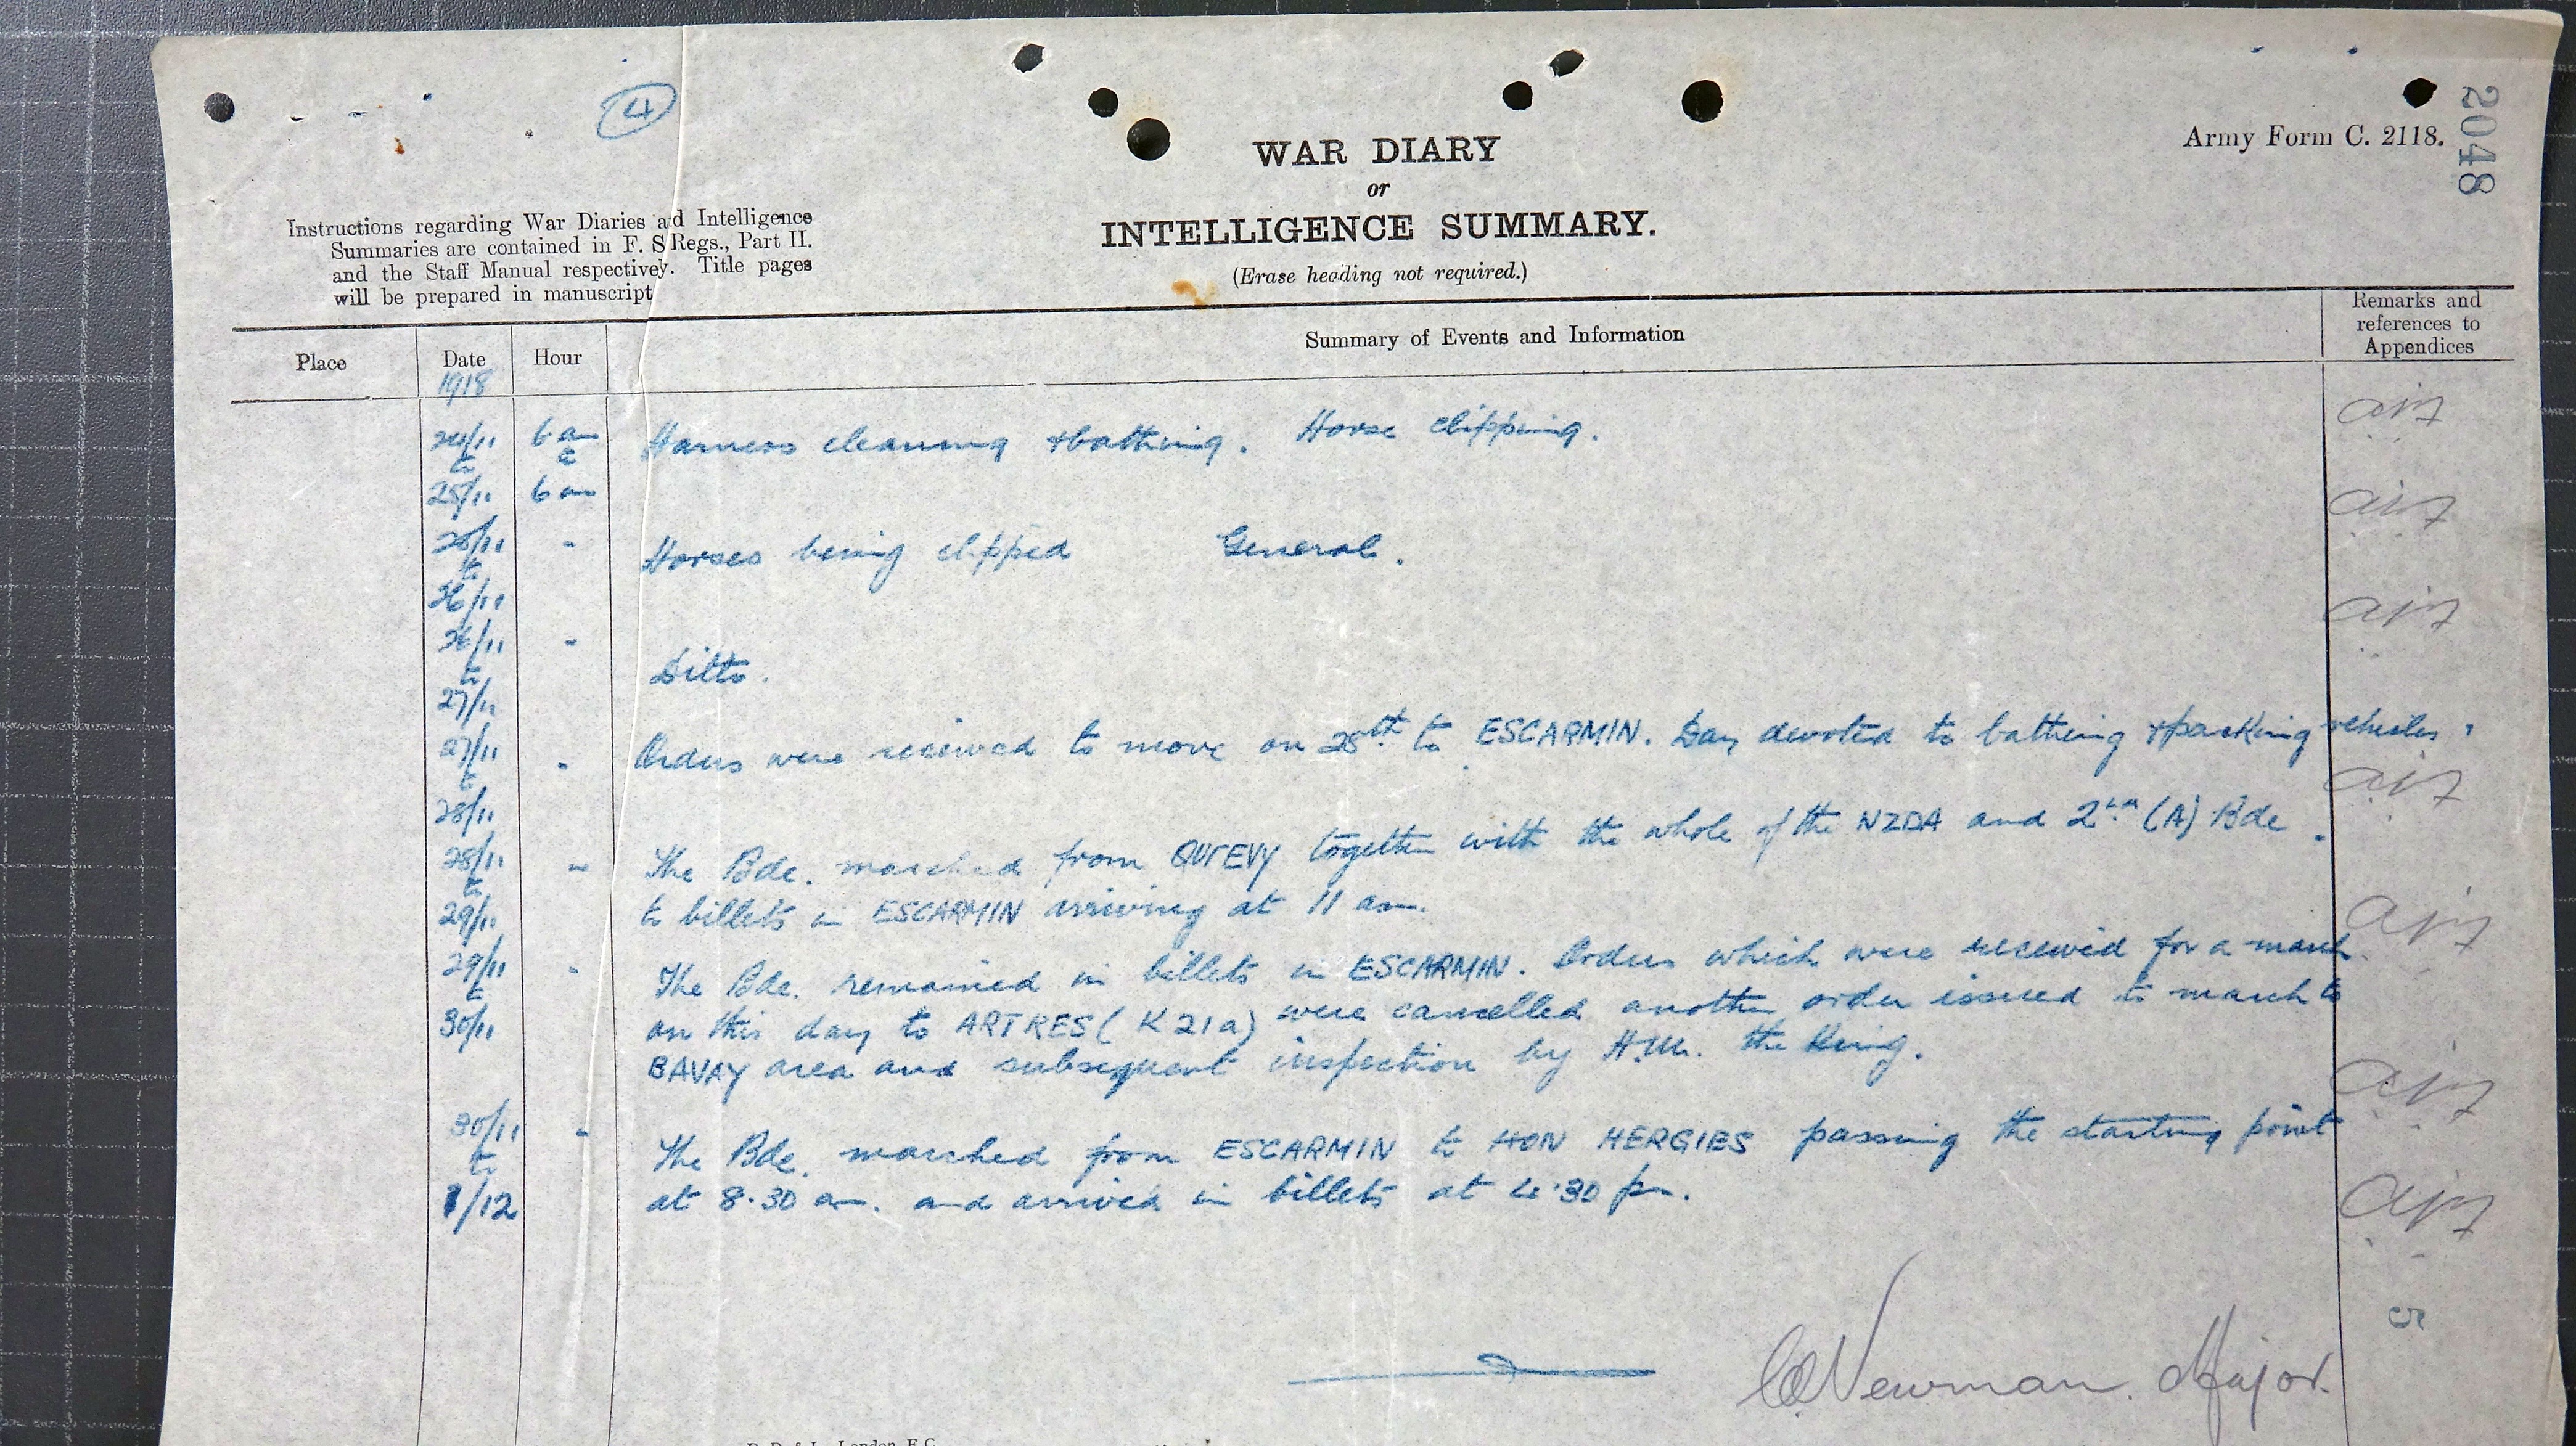 4
2048
Army Form C. 2118.
WAR DIARY
or
INTELLIGENCE SUMMARY.
(Erase heading not required.)
Instructions regarding War Diaries a d Intelligence
Summaries are contained in F. S Regs., Part II.
and the Staff Manual respectivey. Title pages
will be prepared in manuscript
Place Date Hour Summary of Events and Information Remarks and references to Appendices
1918
24/11 6 am Harness cleaning & bathing. Horse clipping.
to to
25/11 6 am
25/11 " Horses being clipped General.
to
26/11
26/11 " Ditto.
to
27/11
27/11 " Orders were received to move on 28th to ESCARMIN. Day devoted to bathing & packing vehicles.
to
28/11
28/11 " The Bde. marched from QUIEVY together with the whole of the NZDA and 2nd (A) Bde.
to
29/11 to billets in ESCARMIN arriving at 11 am.
29/11 " The Bde. remained in billets in ESCARMIN. Orders which were received for a march
to
30/11 on this day to ARTRES (K 21a) were cancelled another order issued to march to
BAVAY area and subsequent inspection by H.M. the King.
30/11 " The Bde. marched from ESCARMIN to HON HERGIES passing the starting point
to
1/12 at 8.30 am. and arrived in billets at 4.30 pm.
5
Newman. Major.